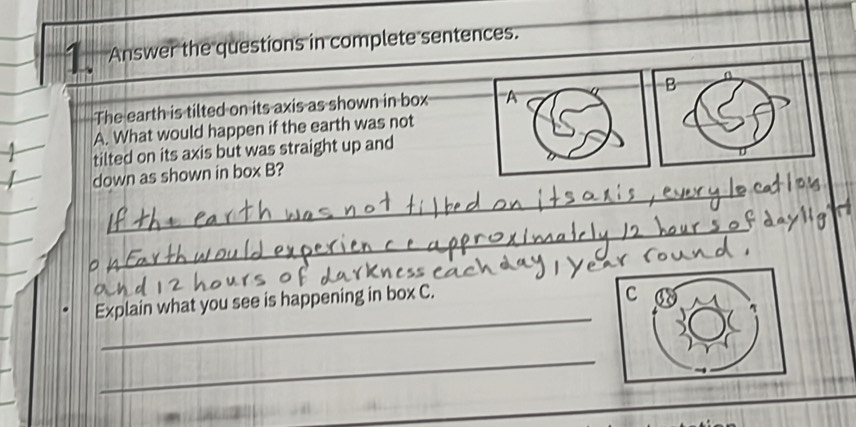 1. Answer the questions in complete sentences.
The earth is tilted on its axis as shown in box
A. What would happen if the earth was not
tilted on its axis but was straight up and
down as shown in box B?
A
B
If the earth was not tilted on its axis, every location
on Earth would experience approximately 12 hours of daylight
and 12 hours of darkness each day, year round.
• Explain what you see is happening in box C.
C